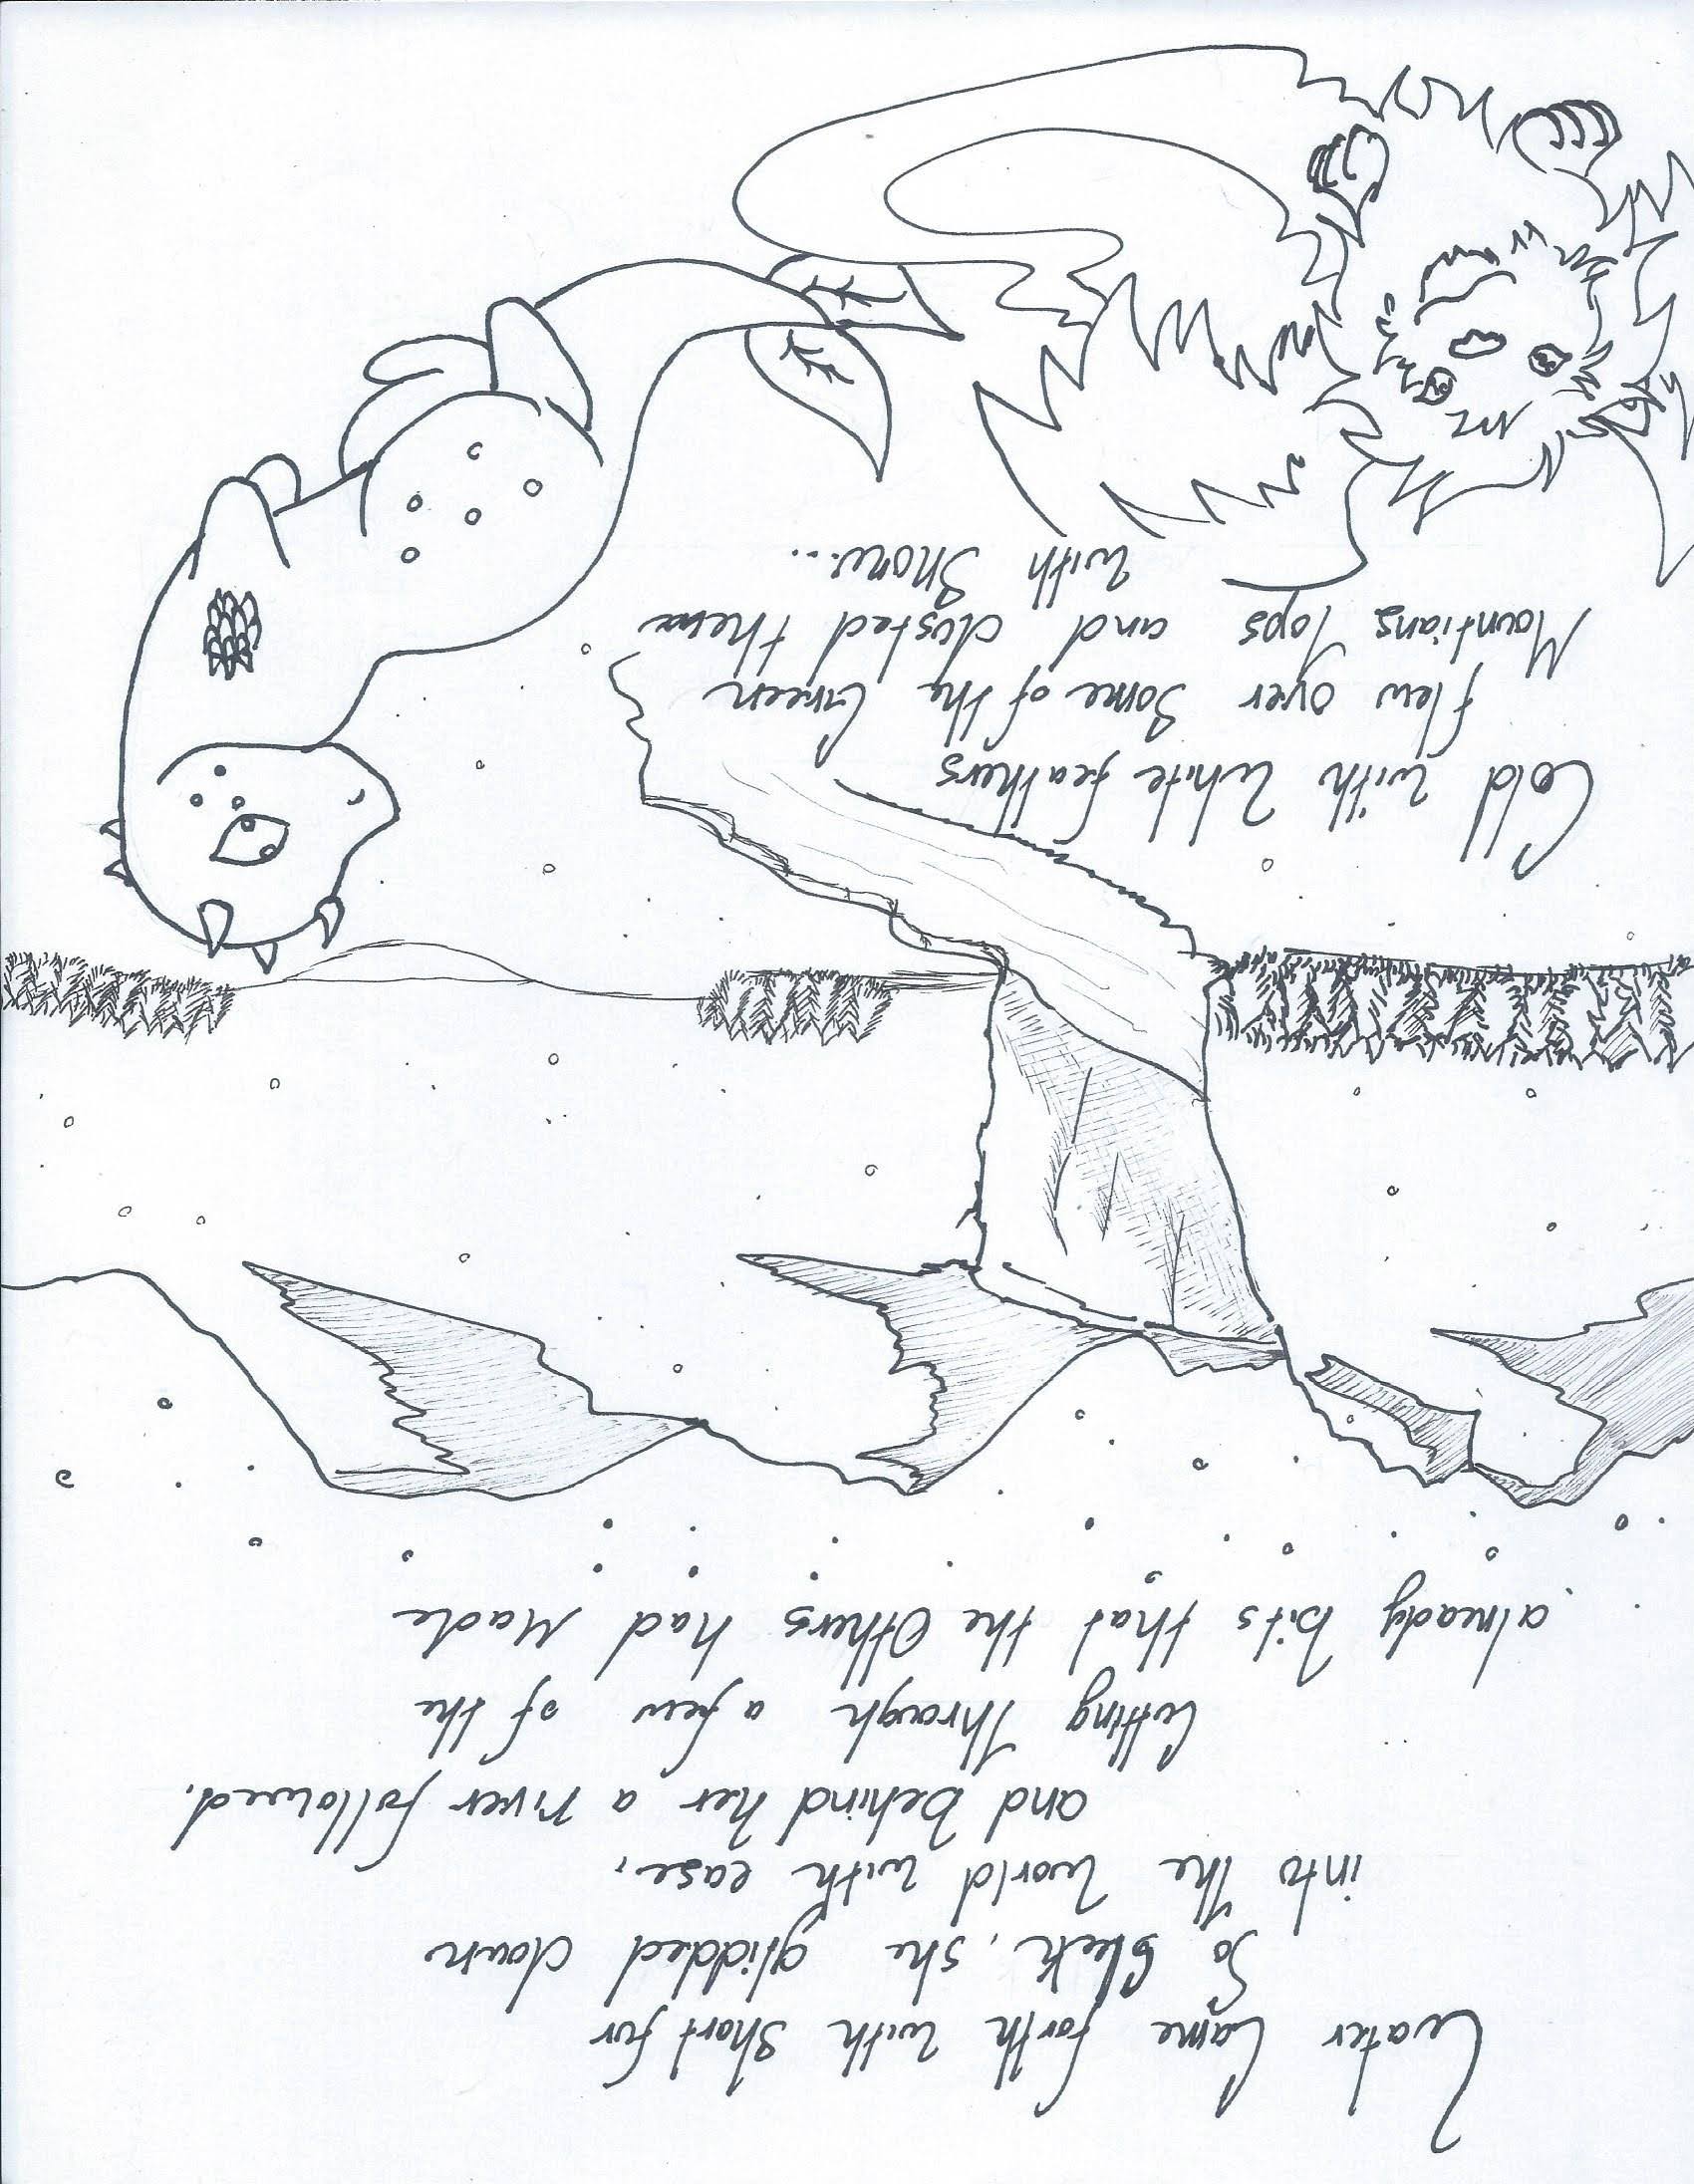 Water Came forth with Short fur
So Sleek, She glidded down
into the World with ease,
and behind her a river followed.
Cutting Through a few of the
already bits that the Others had Made
Cold with White feathers
flew over Some of the Green
Mountians Tops and dusted them
with Snow...